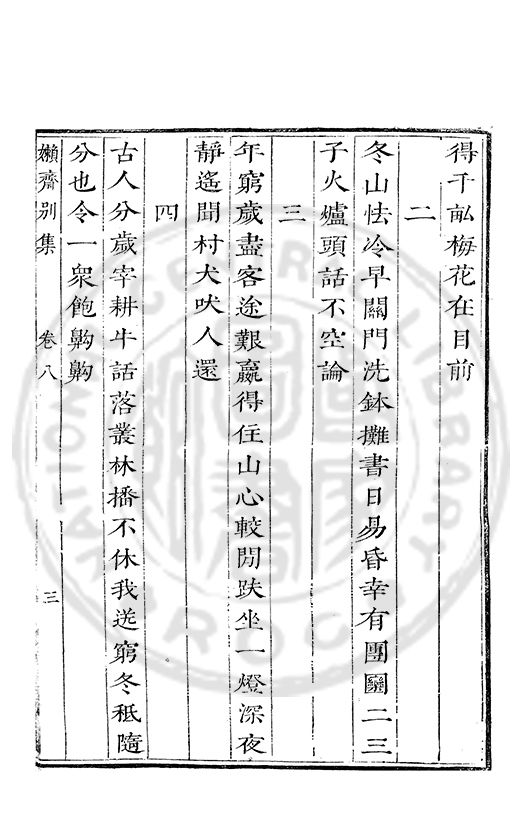 得千畝梅花在目前
二
冬山怯冷早關門洗鉢攤書日易昏幸有團圞二三
子火爐頭話不空論
三
年窮歲盡客途艱贏得住山心較閒趺坐一燈深夜
靜遙聞村犬吠人還
四
古人分歲宰耕牛話落叢林播不休我送窮冬秖隨
分也令一衆飽齁齁
嬾齋別集 卷八 三